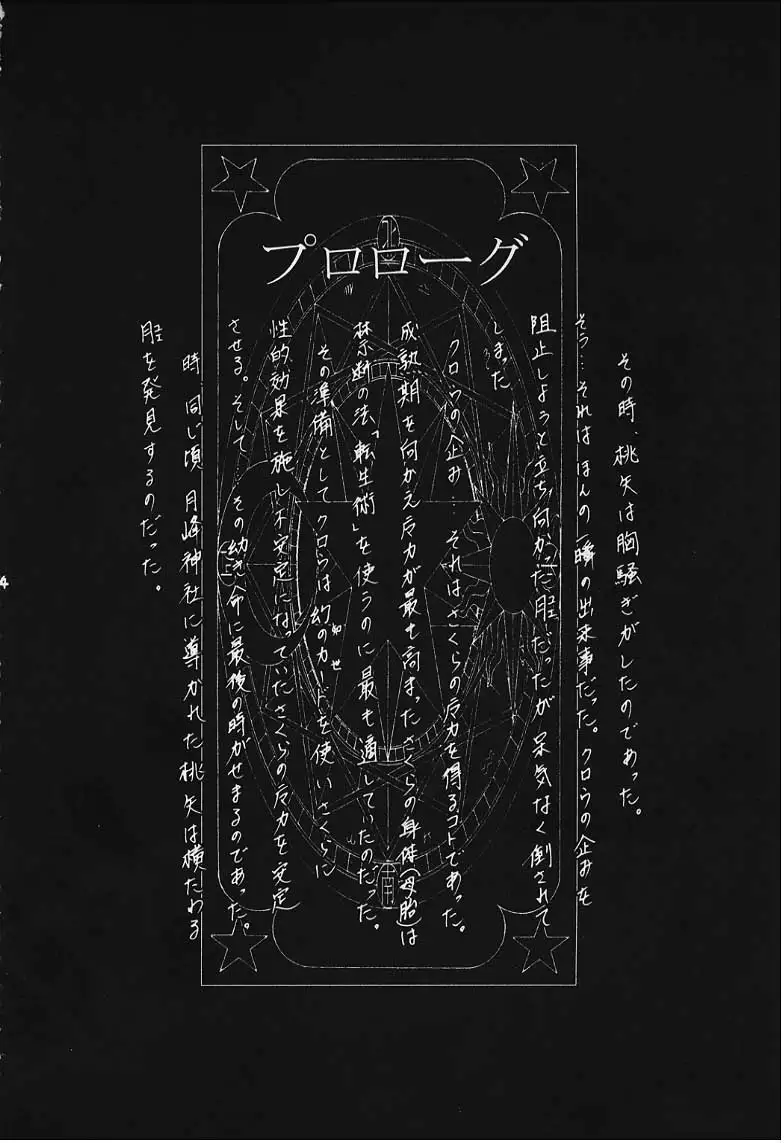 プロローグ
その時、桃矢は胸騒ぎがしたのであった。
そう…それはほんの一瞬の出来事だった。クロウの企みを
阻止しようと立ち向かった月だったが 呆気なく倒されて
しまった
クロウの企み…それはさくらの魔力を得るコトであった。
成熟期を向かえ魔力が最も高まったさくらの身体(母胎)は
禁断の法「転生術」を使うのに最も適していたのだった。
その準備としてクロウは幻のカードを使いさくらに
性的効果を施し不安定になっていたさくらの魔力を安定
させる。そして その幼き命に最後の時がせまるのであった。
時 同じ頃 月峰神社に導かれた桃矢は横たわる
月を発見するのだった。
4